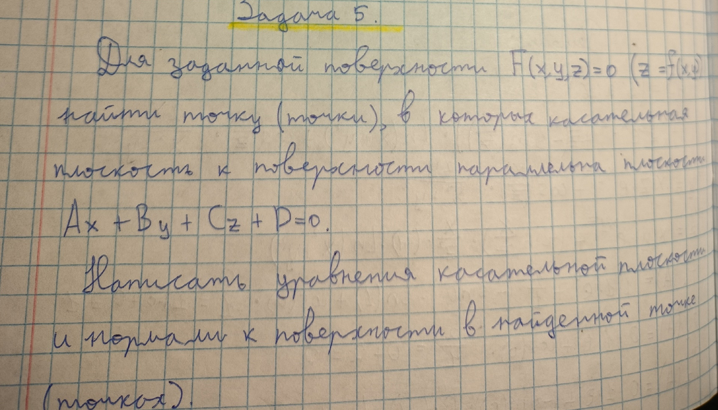 Задача 5.
Для заданной поверхности F(x,y,z)=0 (z=f(x,y)
найти точку (точки), в которых касательная
плоскость к поверхности параллельна плоскости
Ax + By + Cz + D=0.
Написать уравнения касательной плоскости
и нормали к поверхности в найденной точке
(точках).